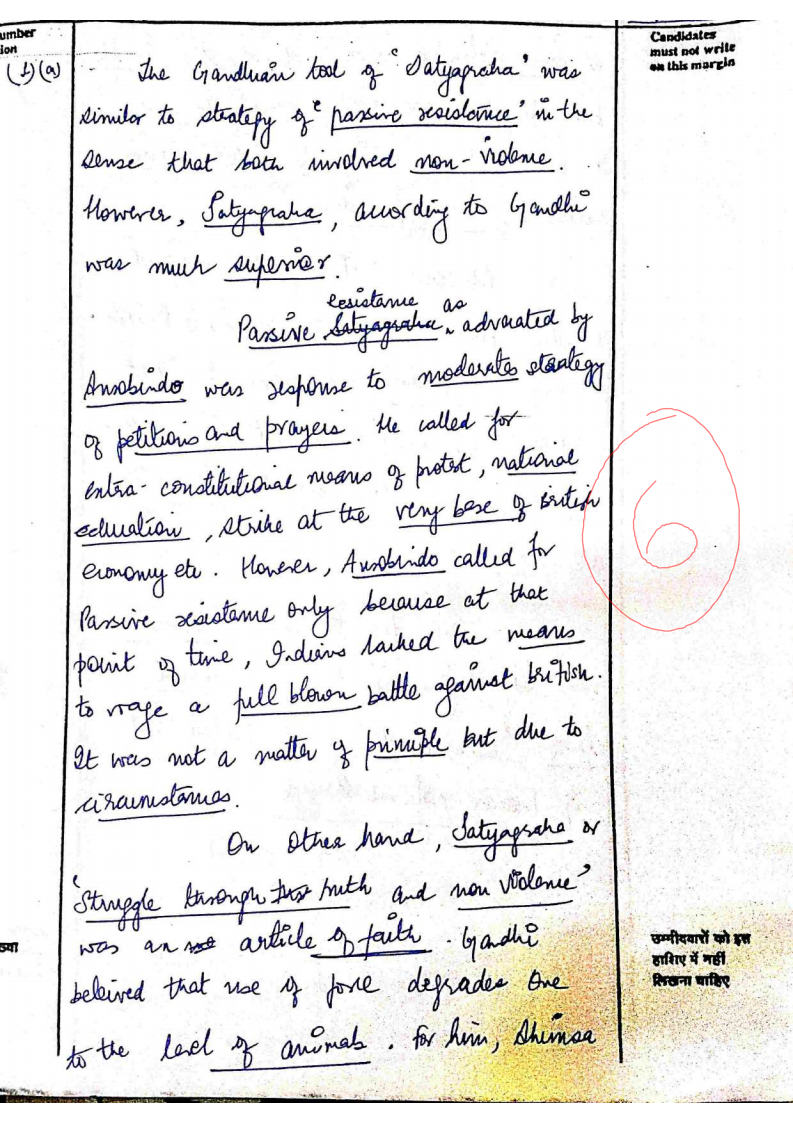 umber
ion
Candidates
must not write
on this margin
(1)(a)
The Gandhian tool of 'Satyagraha' was
similar to strategy of 'passive resistance' in the
sense that both involved non-violence.
However, Satyagraha, according to Gandhi
was much superior.
resistance as
Passive Satyagraha advocated by
Aurobindo was response to moderates strategy
of petitions and prayers. He called for
extra-constitutional means of protest, national
education, strike at the very base of British
economy etc. However, Aurobindo called for
Passive resistance only because at that
point of time, Indians lacked the means
to wage a full blown battle against British.
It was not a matter of principle but due to
circumstances.
On other hand, Satyagraha or
'Struggle through truth and non violence'
was an article of faith. Gandhi
beleived that use of force degrades one
to the level of animals. For him, Ahimsa
6
ख्या
उम्मीदवारों को इस
हाशिए में नहीं
लिखना चाहिए